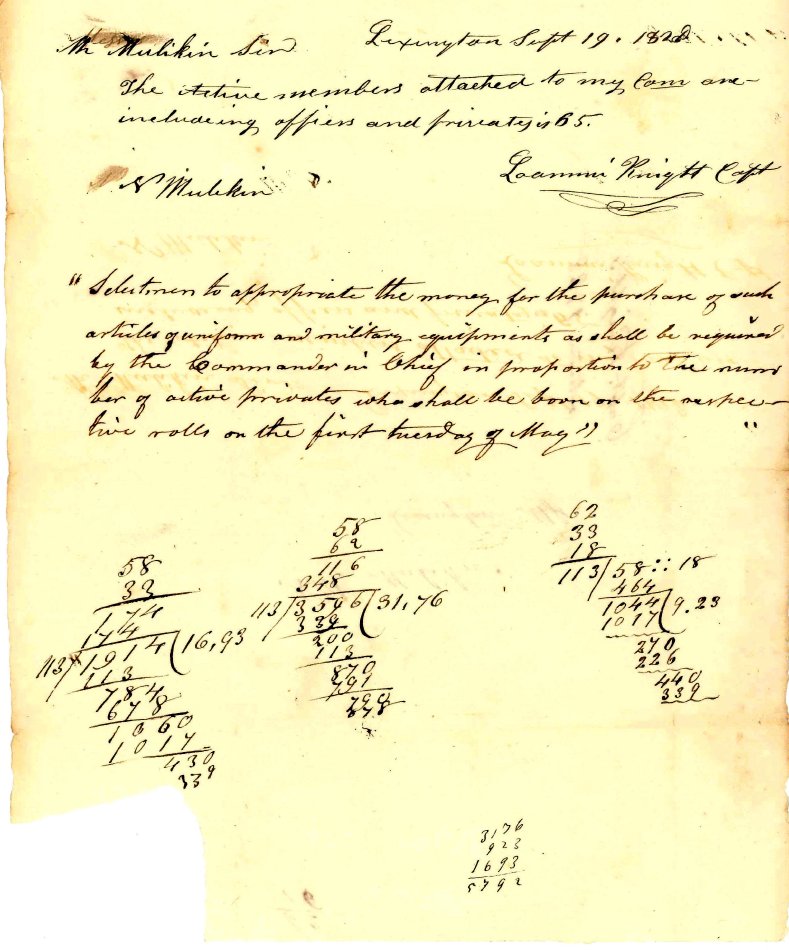 Mr Mulikin Sir Lexington Sept 19. 182
The Active members attached to my Com are
includeing offiers and privates is 65.
Loammi Knight Capt
N Mulikin
" Selectmen to appropriate the money for the purchase of such
articles of uniform and military equipments as shall be required
by the Commander in Chief in proportion to the num
ber of active privates who shall be born on the respec-
tive rolls on the first tuesday of May" "
58
33
174
174
113) 1914 (16,93
113
784
678
1060
1017
430
339
58
62
116
348
113) 3596 (31,76
339
200
113
870
791
790
678
62
33
18
113) 58 :: 18
464
1044 (9.23
1017
270
226
440
339
3176
923
1693
5792